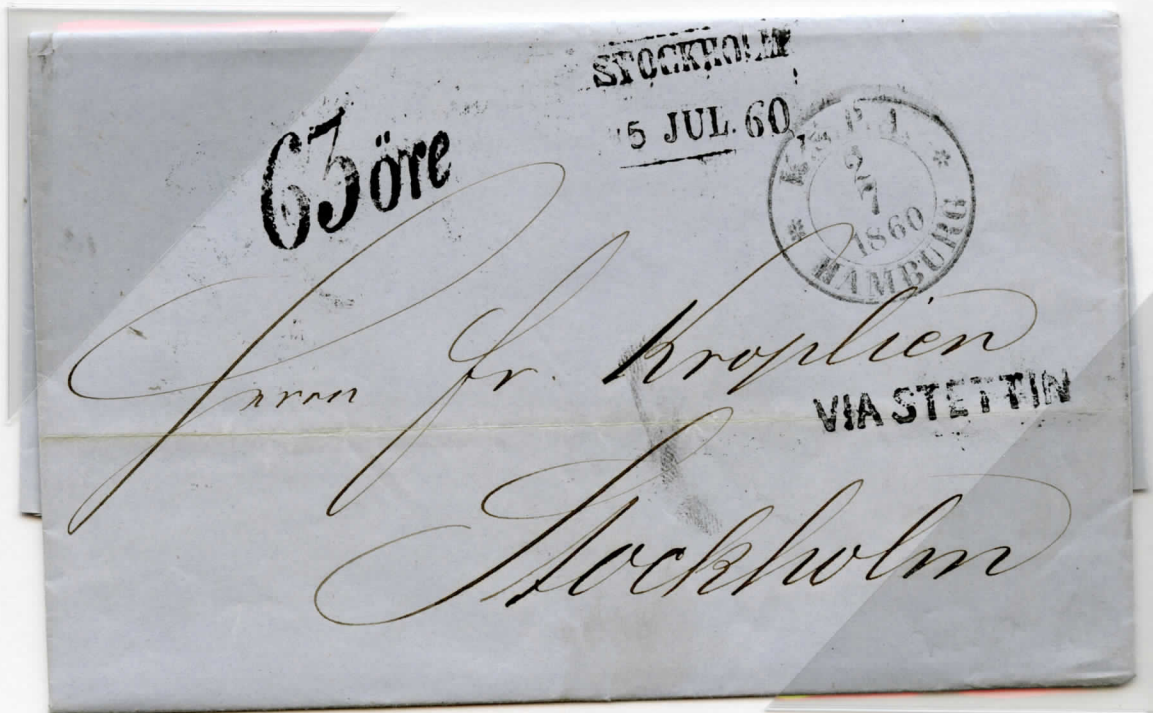 STOCKHOLM
5 JUL. 60
63 öre
K.S.P.A.
2
7
1860
HAMBURG
Herrn Fr. Kroplien
VIA STETTIN
Stockholm